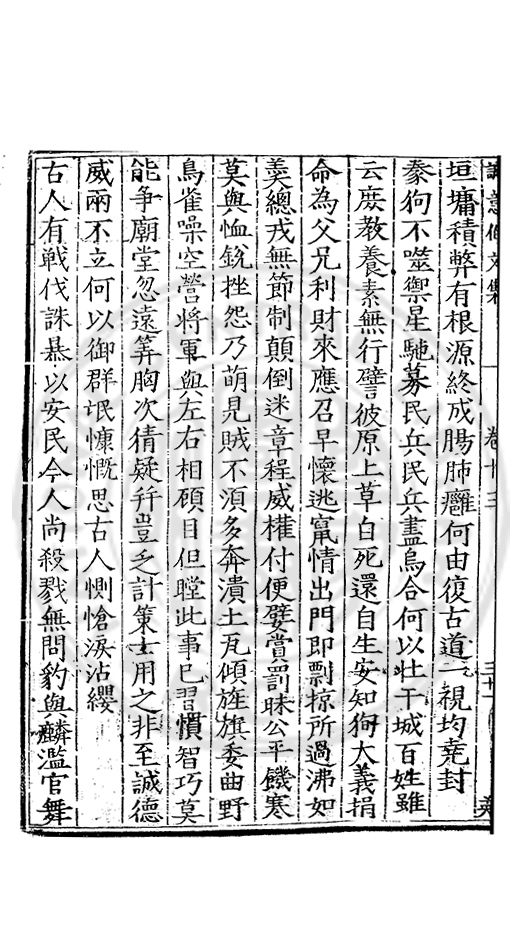 誠意伯文集 卷十三
垣墉積弊有根源終成腸肺癰何由復古道一視均堯封
豢狗不噬禦星馳募民兵民兵盡烏合何以壯干城百姓雖
云庶教養素無行譬彼原上草自死還自生安知狥大義捐
命為父兄利財來應召早懷逃竄情出門即剽掠所過沸如
羮總戎無節制顛倒迷章程威權付便嬖賞罰昧公平饑寒
莫與恤銳挫怨乃萌見賊不湏多奔潰土瓦傾旌旗委曲野
鳥雀噪空營將軍與左右相顧目但瞠此事已習慣智巧莫
能爭廟堂忽遠筭胸次猜疑幷豈乏計策士用之非至誠德
威兩不立何以御群氓慷慨思古人惻愴淚沾纓
古人有戰伐誅㬥以安民今人尚殺戮無問豹與麟濫官舞